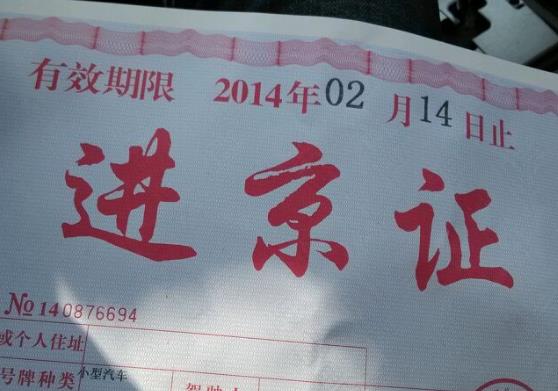 有效期限 2014年02月14日止
进京证
№140876694
或个人住址
号牌种类 小型汽车